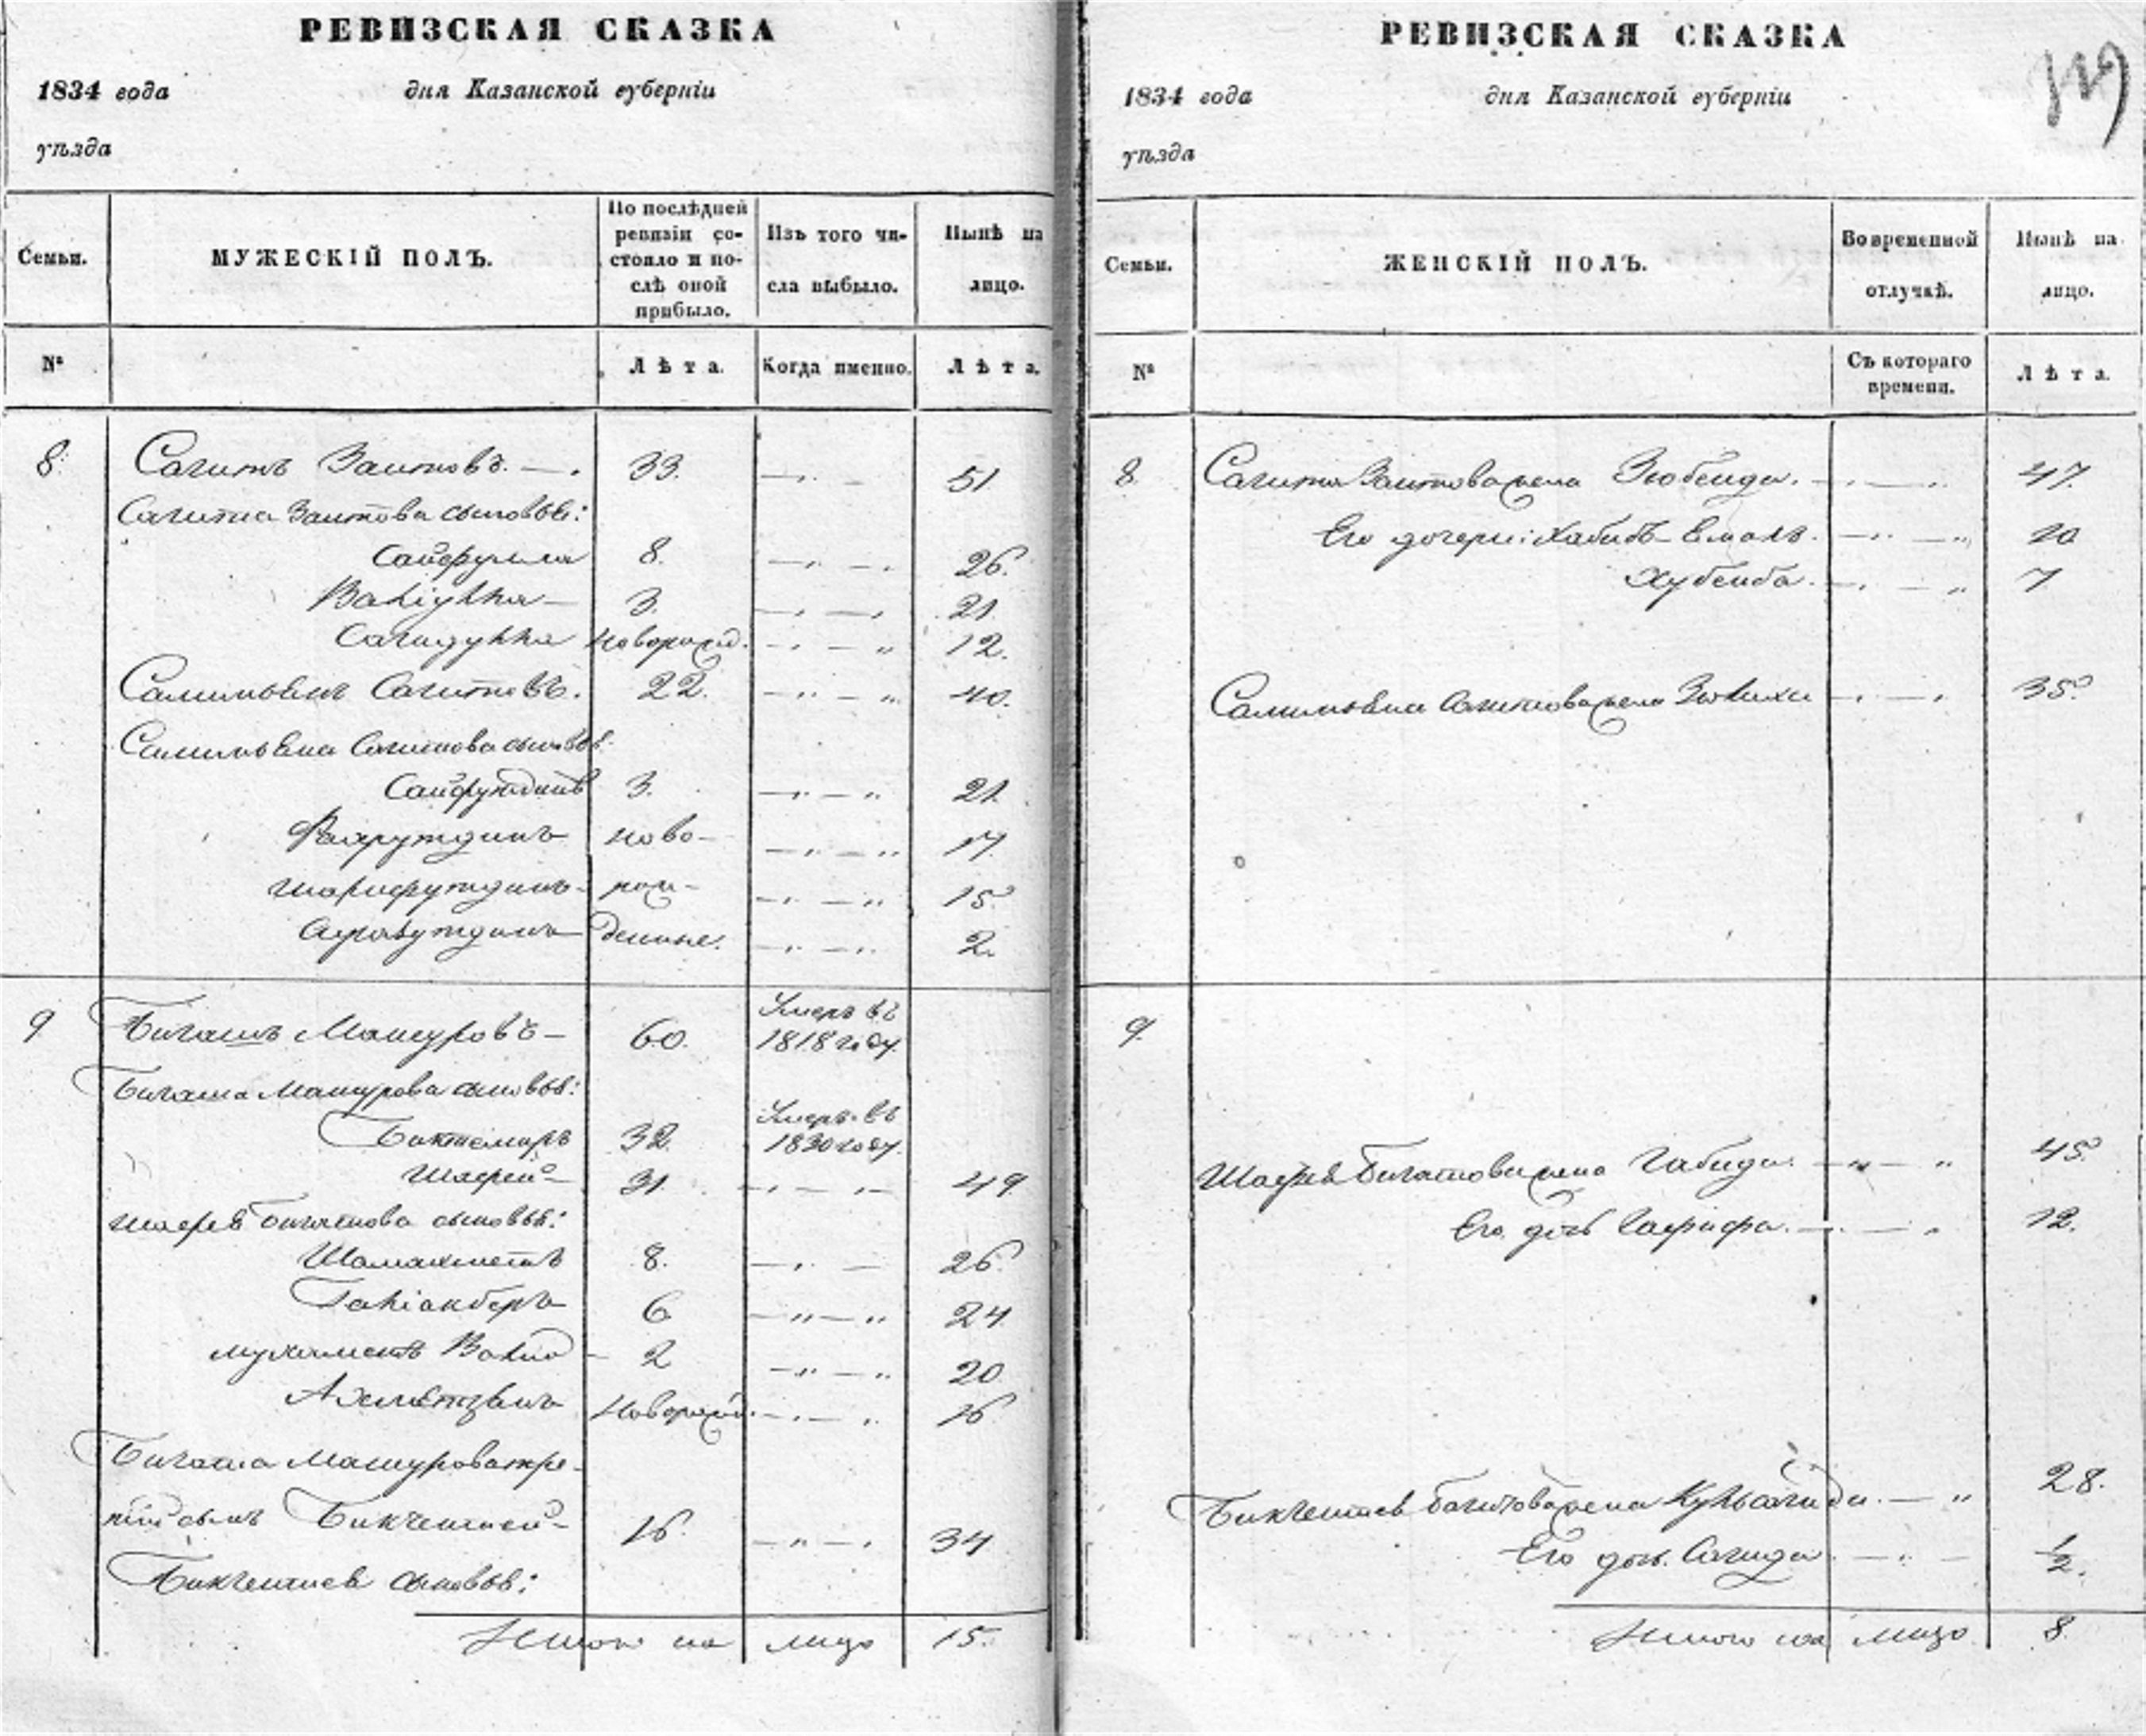 РЕВИЗСКАЯ СКАЗКА
1834 года дня Казанской губерніи
уѣзда
Семьи.
МУЖЕСКІЙ ПОЛЪ.
По послѣдней
ревизіи со-
стояло и по-
слѣ оной
прибыло.
Изъ того чи-
сла выбыло.
Нынѣ на
лицо.
№
Лѣта.
Когда именно.
Лѣта.
8. Сагитъ Заитовъ. 33. 51
Сагита Заитова сыновья:
Сайфулла 8. 26.
3. 21.
Новорожд. 12.
Сагитовъ. 22. 40.
Сагитова сыновья:
Сайфутдинъ 3. 21.
Фахрутдинъ ново- 17.
Шарафутдинъ рож- 15
денные. 2.
9 Бигашъ Мансуровъ 60. Умеръ въ
1818 году.
Бигаша Мансурова сыновья:
Биктемиръ 32. Умеръ въ
1830 году.
Шафей 31. 49.
Шафея Бигашова сыновья:
Шамахметъ 8. 26.
6 24
Мухаметъ 2 20
Ахметзянъ Новорожд. 16
Бигаша Мансурова тре-
тій сынъ Бикчентей 16. 34
Бикчентея сыновья:
Итого на лицо 15.
РЕВИЗСКАЯ СКАЗКА
1834 года дня Казанской губерніи
уѣзда
Семьи.
ЖЕНСКІЙ ПОЛЪ.
Во временной
отлучкѣ.
Нынѣ на
лицо.
№
Съ котораго
времени.
Лѣта.
8. Сагита Заитова жена Зюбейда. 47.
Его дочери: Хабибъ-Емалъ. 20
7
Сагитова жена 35
9.
Шафея Бигашова жена Габида. 45.
Его дочь 12.
Бикчентея жена 28.
Его дочь Сагида 1/2.
Итого на лицо 8.